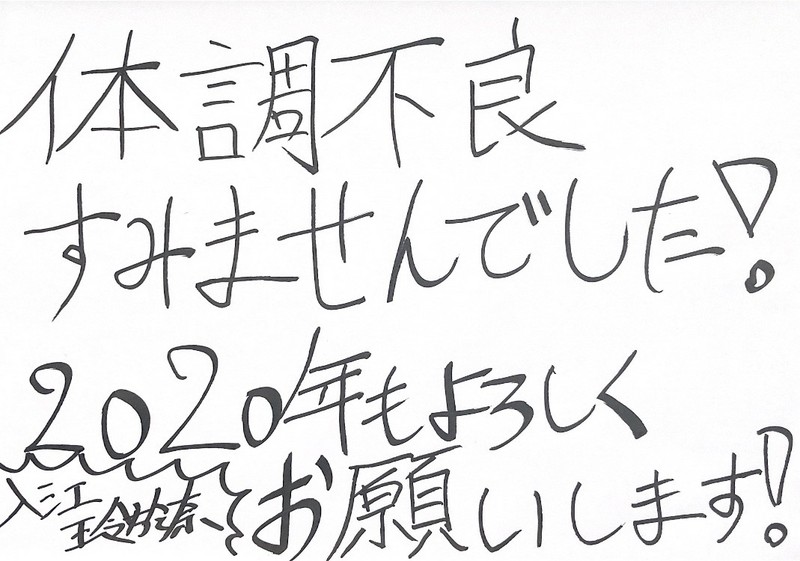 体調不良
すみませんでした!
2020年もよろしく
お願いします!
入江